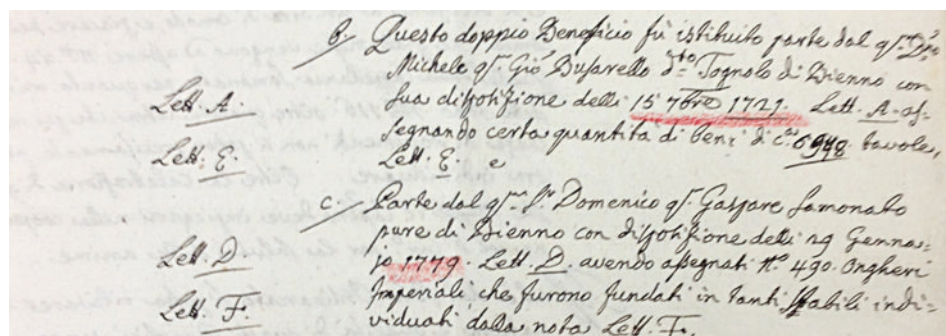 b. Questo doppio Beneficio fù istituito parte dal qm. Dno
Michele qm. Giõ Busarello dto. Tognolo di Bienno con
Lett. A. sua disposizione delli 15 7bre 1721. Lett. A. as-
segnando certa quantita di beni di ca. 6948. tavole,
Lett. E. Lett. E. e
c. Parte dal qm. Sr. Domenico qm. Gaspare Samonato
pure di Bienno con disposizione delli 29 Genna-
Lett. D. jo 1779. Lett. D. avendo assegnati No. 490. Ongheri
Imperiali che furono fundati in tanti stabili indi-
Lett. F. viduati dalla nota Lett. F.